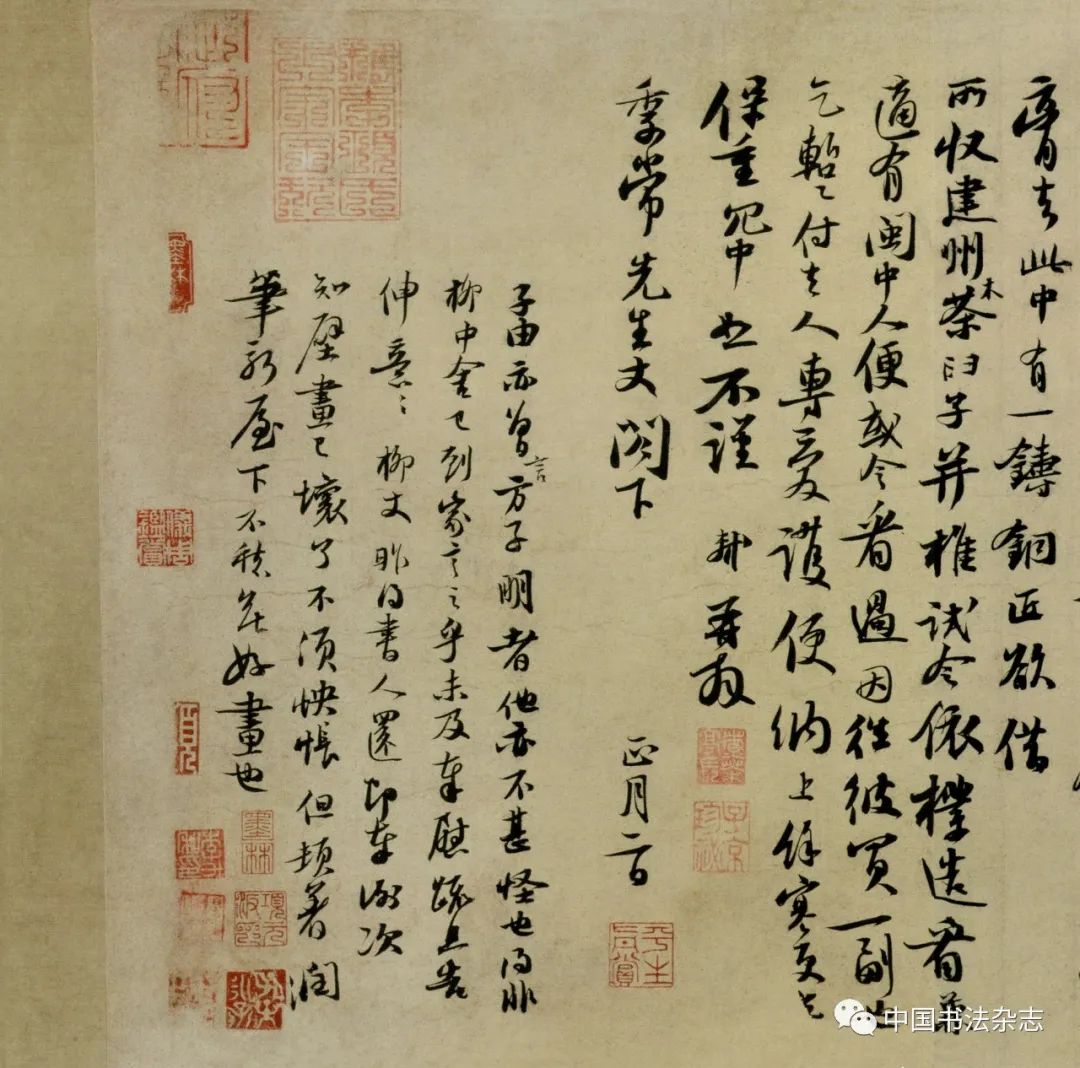 膏去此中有一鑄銅匠欲借
所收建州木茶臼子并椎試令依樣造看兼
適有閩中人便或令看過因往彼買一副也
乞蹔付去人專愛護便納上餘寒更乞
保重冗中恕不謹 軾再拜
季常先生丈閣下
正月二日
子由亦曾言方子明者他亦不甚怪也得非
柳中舍已到家言之乎未及奉慰疏且告
伸意〻柳丈昨得書人還即奉謝次
知壁畫已壞了不須怏悵但頓著潤
筆新屋下不愁無好畫也
平生真賞
墨林
中国书法杂志